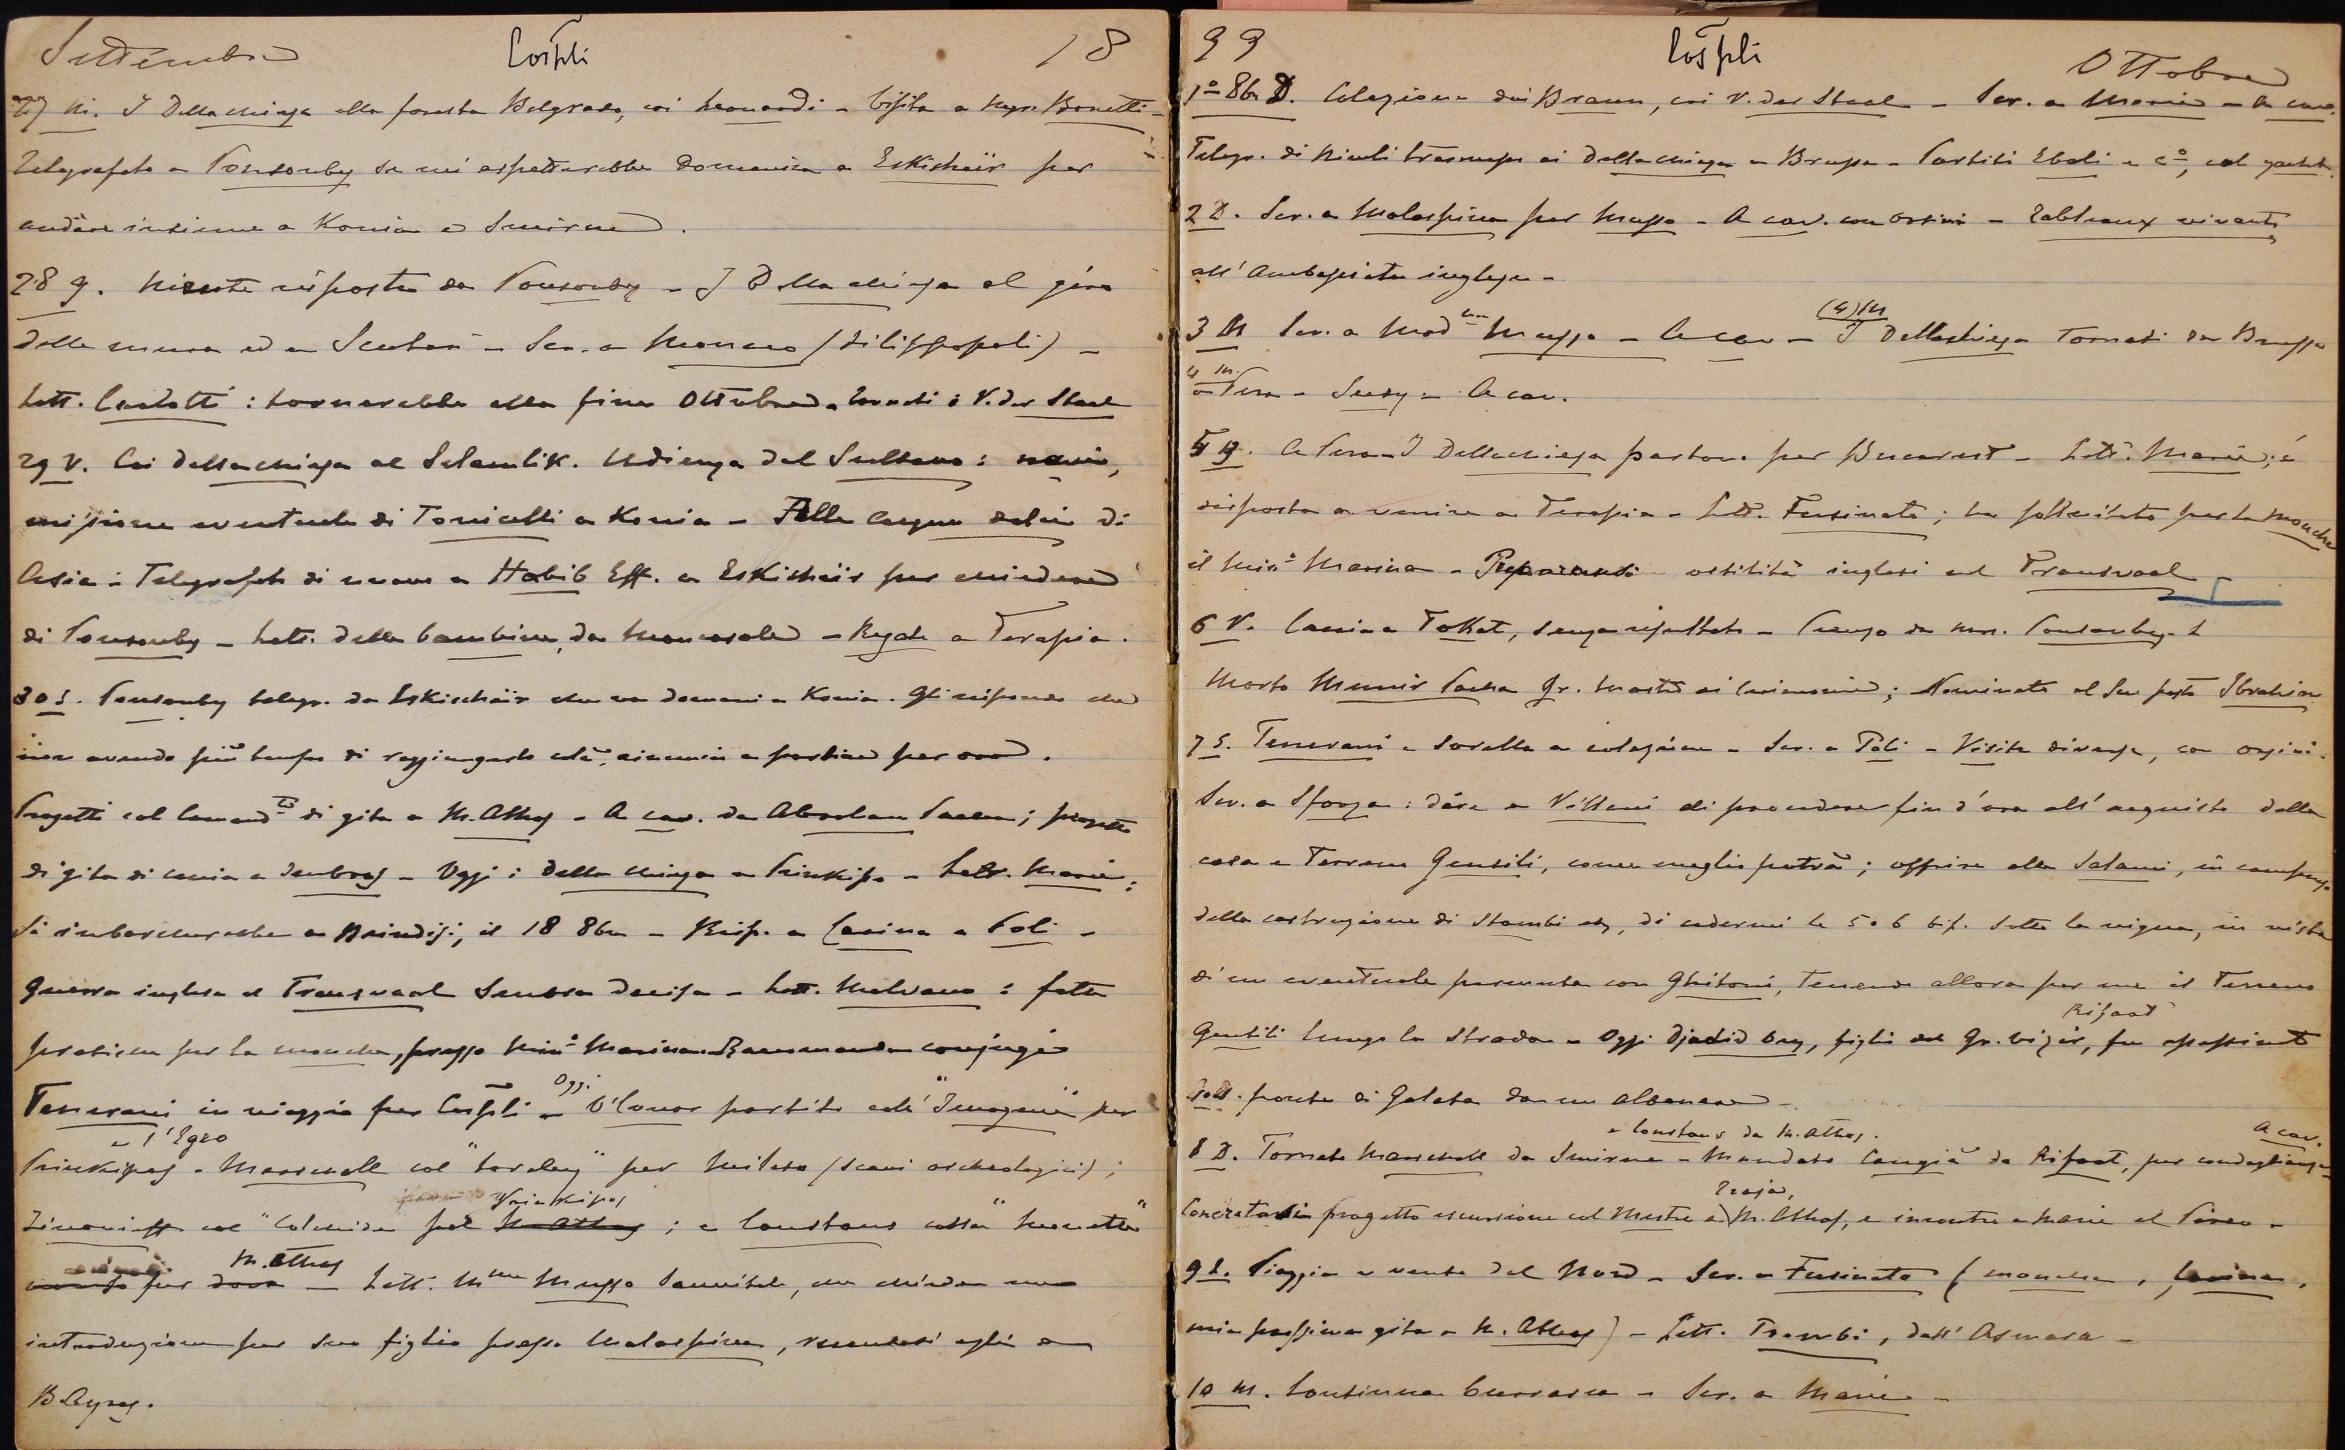 Settembre Cospli 18
27 M. I Dellachiesa alla foresta Belgrado, coi Leonardi - Visita a Mgr. Bonetti -
Telegrafato a Ponsonby se mi aspetterebbe domenica a Eskisheir per
andare insieme a Konia e Smirne.
28 g. Niente risposta da Ponsonby - I Dellachiesa al giro
delle mura ed a Scutari - Scr. a Monaco (Filippopoli) -
Lett. Carlotti: tornerebbe alla fine Ottobre. Tornati i V. der Stael
29 V. Coi Dellachiesa al Selamlik. Udienza del Sultano: navi,
missione eventuale di Tonicelli a Konia - Alle acque dolci di
Asia - Telegrafato di nuovo a Habib Eff. a Eskisheir per chiedere
di Ponsonby - Lett. delle bambine, da Moncasale - Regate a Terapia.
30 S. Ponsonby telegr. da Eskischeir che va domani a Konia. Gli rispondo che
non avendo più tempo di raggiungerlo colà, rinuncio a partire per ora.
Progetti col Comand.te di gita a M. Athos - A cav. da Abraham Pacha; progetto
di gita di caccia a Jenbros - Oggi i Della Chiesa a Prinkipo - Lett. Marie:
Si imbarcherebbe a Brindisi, il 18 8bre - Risp. a Casina e Poli -
Guerra inglese al Transvaal sembra decisa - Lett. Malvano: fatte
pratiche per la mouche, presso Min.o Marina. Raccomanda conjugi
Tenerani in viaggio per Cospli - Oggi O'Conor partito coll'"Imogene" per
Prinkipos e l'Egeo - Marschall col "Loreley" per Mileto (scavi archeologici);
Zinovieff col "Colchide" pel M. Athos Prinkipos; e Constans colla "Mouette"
per dova M. Athos - Lett. Mme Musso Sannitale, che chiede una
introduzione per suo figlio presso Malaspina, recandosi egli a
B. Ayres.
99 Cospli Ottobre
1° 8br D. Colazione dai Braun, coi V. der Stael - Scr. a Marie - A cav.
Telegr. di Nicoli trasmesso ai Dellachiesa a Brussa - Partiti Eboli e C°, col yacht.
2 L. Scr. a Malaspina per Musso - A cav. con Orsini - Tableaux vivants
all'Ambasciata inglese -
3 M Scr. a Mad.me Musso - A cav - (4) M I Dellachiesa tornati da Brussa
4 M. a Pera - Suzy - A cav.
5 g. A Pera - I Dellachiesa partono per Bucarest - Lett. Marie; è
disposta a venire a Terapia - Lett. Fusinato; ha sollecitato per la mouche
il Min.o Marina - Preparansi ostilità inglesi col Transvaal -
6 V. Caccia a Tokat, senza risultato - Pranzo da Mrs. Ponsonby -
Morto Munir Pacha Gr. Mastro di Cerimonie; Nominato al suo posto Ibrahim
7 S. Tenerani e sorella a colazione - Scr. a Poli - Visite diverse, con Orsini.
Scr. a Sforza: dire a Villani di procedere fin d'ora all'acquisto della
casa e terreno Gentili, come meglio potrà; offrire alla Salami, in compenso
della costruzione di Stambi etc, di cedermi le 5 o 6 bif. sotto la vigna, in vista
di un eventuale permuta con Ghitoni, tenendo allora per me il terreno
Gentili lungo la strada - Oggi Djavid bey, figlio del Gr. Vizir Rifaat, fu assassinato
sul ponte di Galata da un albanese -
8 D. Tornato Marschall da Smirne e Constans da M. Athos. - Mandato Cangià da Rifaat, per condoglianze - A cav.
Concretasi progetto escursione col Mestre a Troja, M. Athos, e incontro a Marie al Pireo -
9 L. Pioggia e vento del Nord - Scr. a Fusinato (mouche, Casina,
mia prossima gita a M. Athos) - Lett. Trombi, dall'Asmara -
10 M. Continua burrasca - Scr. a Marie -